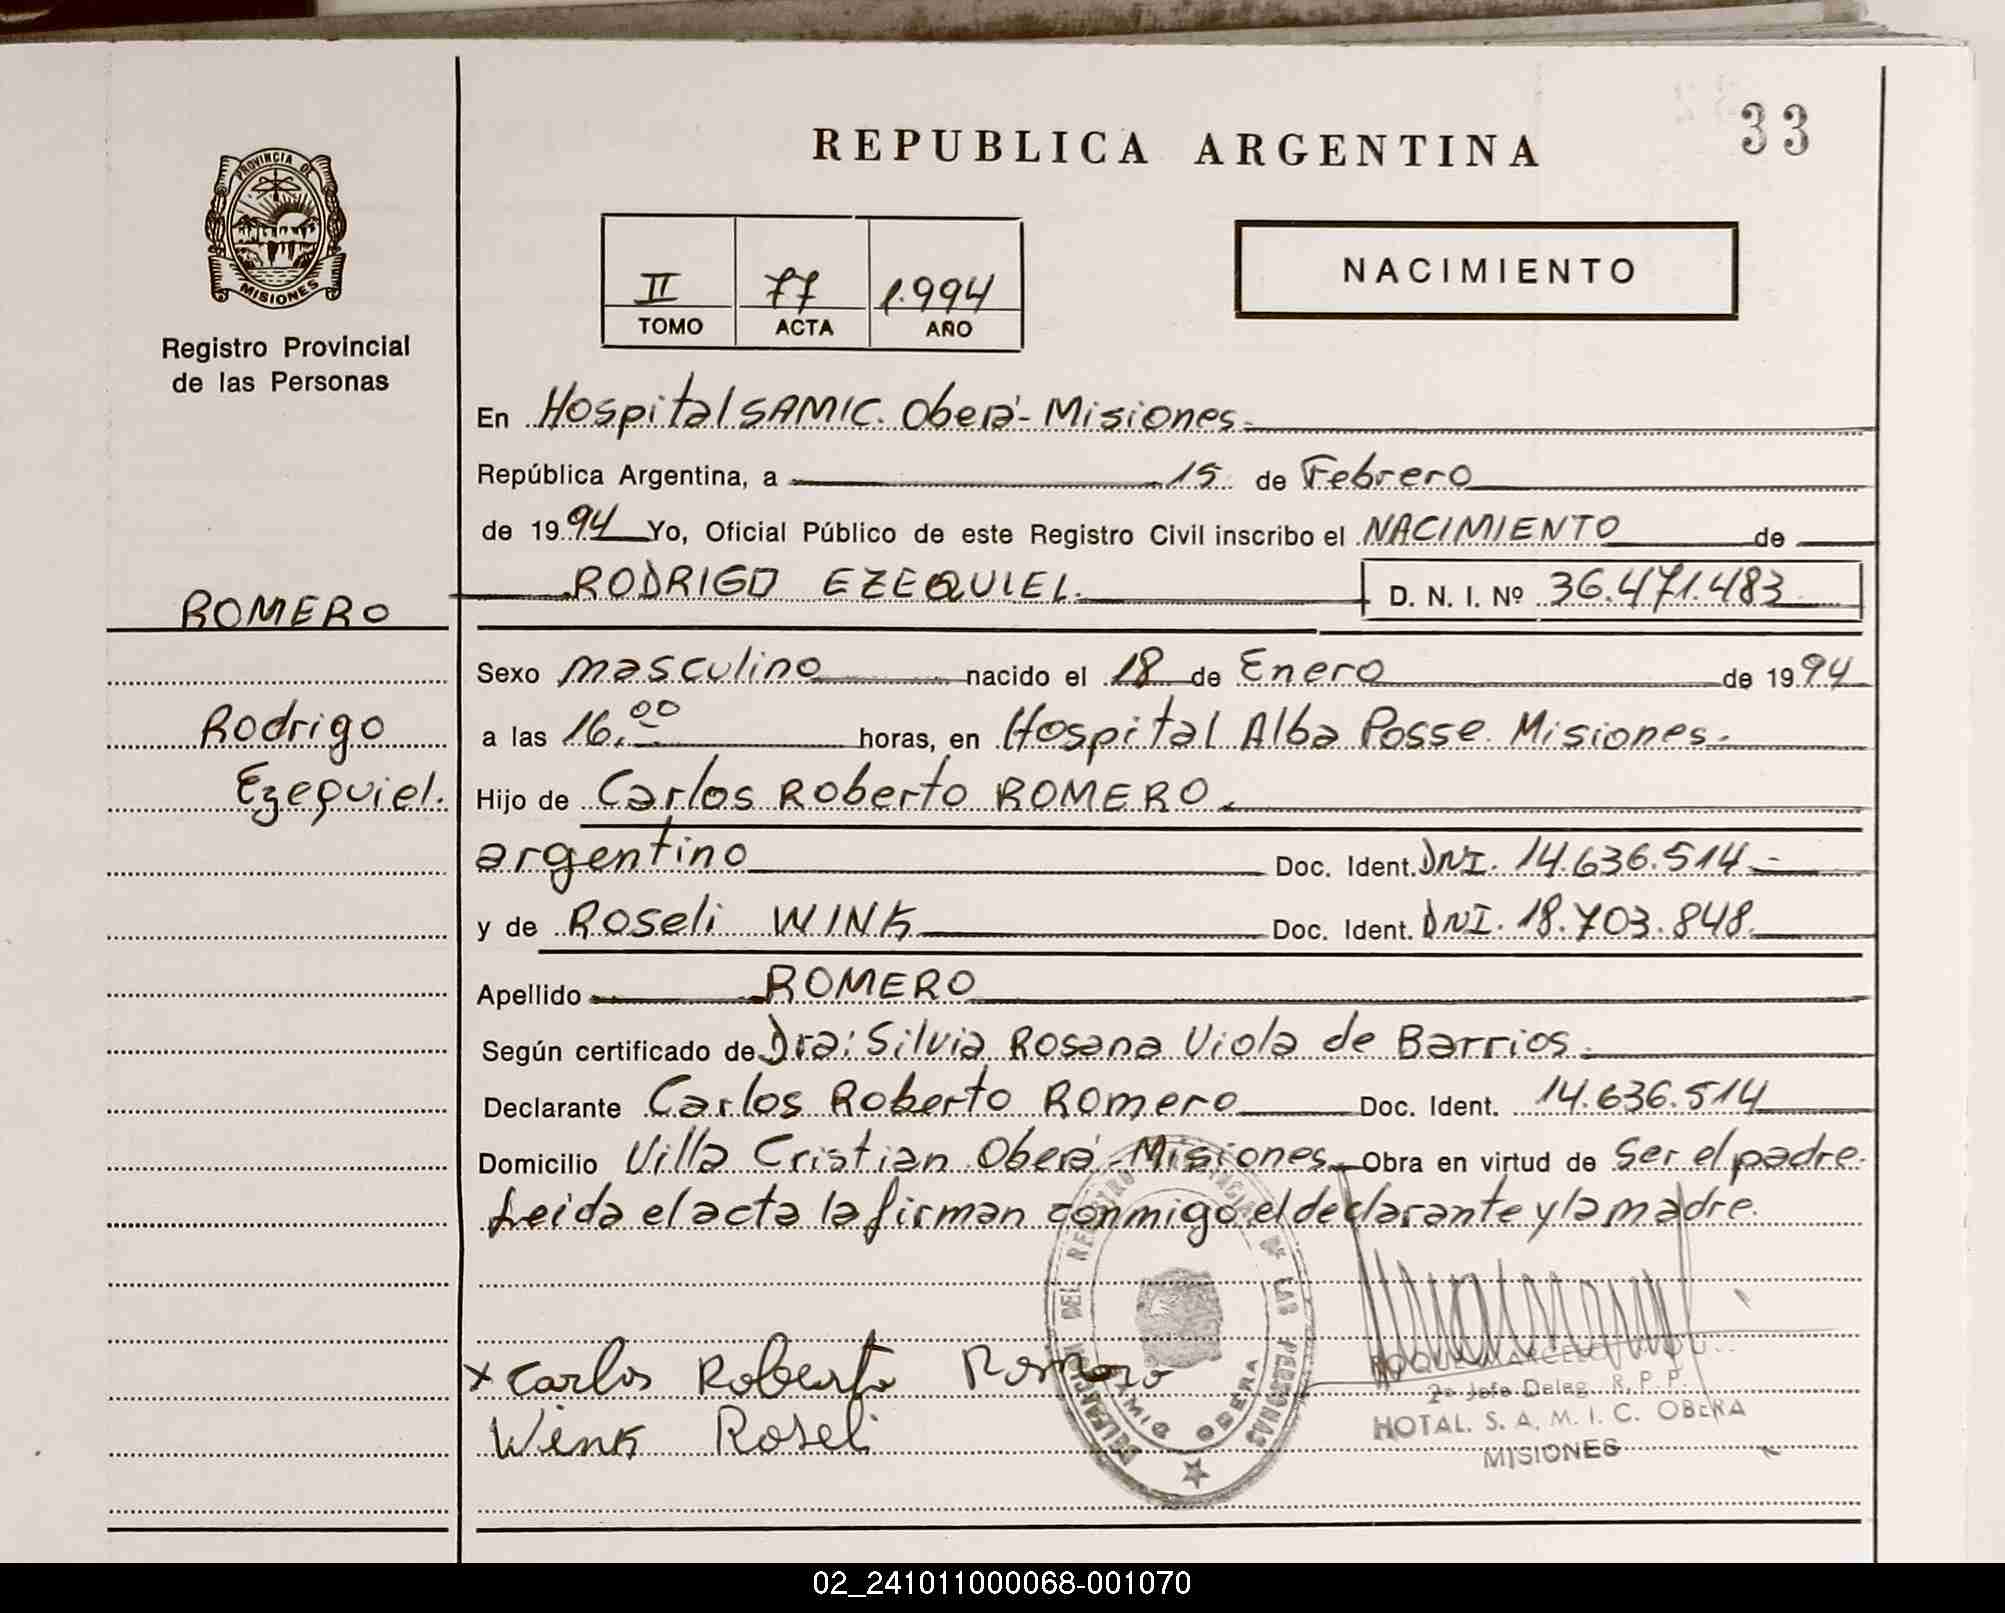 33
REPUBLICA ARGENTINA
PROVINCIA DE
MISIONES
Registro Provincial
de las Personas
II 77 1.994
TOMO ACTA AÑO
NACIMIENTO
En Hospital SAMIC. Oberá - Misiones.
República Argentina, a 15 de Febrero
de 1994 Yo, Oficial Público de este Registro Civil inscribo el NACIMIENTO de
ROMERO
RODRIGO EZEQUIEL. D. N. I. Nº 36.471.483
Sexo masculino nacido el 18 de Enero de 1994
Rodrigo
a las 16.00 horas, en Hospital Alba Posse Misiones.
Ezequiel.
Hijo de Carlos Roberto ROMERO.
argentino Doc. Ident. DNI. 14.636.514
y de Roseli WINK Doc. Ident. DNI. 18.703.848.
Apellido ROMERO
Según certificado de Dra: Silvia Rosana Viola de Barrios.
Declarante Carlos Roberto Romero Doc. Ident. 14.636.514
Domicilio Villa Cristian Oberá - Misiones Obra en virtud de Ser el padre.
Leida el acta la firman conmigo el declarante y la madre.
x Carlos Roberto Romero
Wink Roseli
DEL REGISTRO PROVINCIAL DE LAS PERSONAS
OBERA
ROQUE MARCELO
2º Jefe Deleg. R. P. P.
HOTAL. S. A. M. I. C. OBERA
MISIONES
02_241011000068-001070